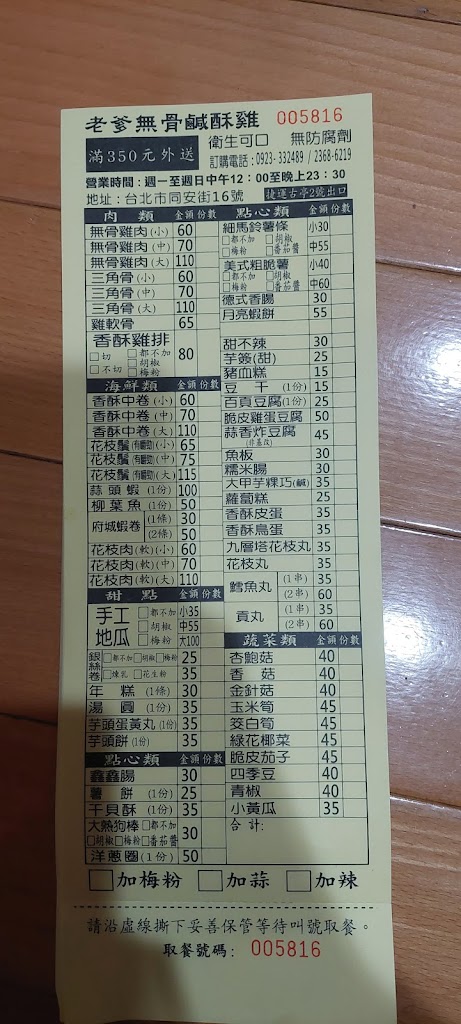 老爹無骨鹹酥雞 005816
滿350元外送 衛生可口 無防腐劑
訂購電話:0923-332489 / 2368-6219
營業時間:週一至週日中午12:00至晚上23:30
地址:台北市同安街16號 捷運古亭2號出口
肉類 金額 份數
無骨雞肉(小) 60
無骨雞肉(中) 70
無骨雞肉(大) 110
三角骨(小) 60
三角骨(中) 70
三角骨(大) 110
雞軟骨 65
香酥雞排 80
□切 □都不加
□不切 □胡椒
□梅粉
海鮮類 金額 份數
香酥中卷(小) 60
香酥中卷(中) 70
香酥中卷(大) 110
花枝鬚(有嚼勁)(小) 65
花枝鬚(有嚼勁)(中) 75
花枝鬚(有嚼勁)(大) 115
蒜頭蝦(1份) 100
柳葉魚(1份) 50
府城蝦卷 (1條) 30
(2條) 50
花枝肉(軟)(小) 60
花枝肉(軟)(中) 70
花枝肉(軟)(大) 110
甜點 金額 份數
手工地瓜 □都不加 小35
□胡椒 中55
□梅粉 大100
銀絲卷 □都不加□胡椒□梅粉 25
□煉乳 □花生粉 35
年糕(1條) 30
湯圓(1份) 35
芋頭蛋黃丸(1份) 35
芋頭餅(1份) 35
點心類 金額 份數
鑫鑫腸 30
薯餅(1份) 25
干貝酥(1份) 35
大熱狗棒 □都不加 30
□胡椒□梅粉□番茄醬
洋蔥圈(1份) 50
點心類 金額 份數
細馬鈴薯條 小30
□都不加 □胡椒 中55
□梅粉 □番茄醬
美式粗脆薯 小40
□都不加 □胡椒 中60
□梅粉 □番茄醬
德式香腸 30
月亮蝦餅 55
甜不辣 30
芋簽(甜) 25
豬血糕 15
豆干(1份) 15
百頁豆腐(1份) 25
脆皮雞蛋豆腐 50
蒜香炸豆腐 45
魚板 30
糯米腸 30
大甲芋粿巧(鹹) 35
蘿蔔糕 25
香酥皮蛋 35
香酥鳥蛋 35
九層塔花枝丸 35
花枝丸 35
鱈魚丸 (1串) 35
(2串) 60
貢丸 (1串) 35
(2串) 60
蔬菜類 金額 份數
杏鮑菇 40
香菇 40
金針菇 40
玉米筍 45
筊白筍 45
綠花椰菜 45
脆皮茄子 45
四季豆 40
青椒 40
小黃瓜 35
合計:
□加梅粉 □加蒜 □加辣
請沿虛線撕下妥善保管等待叫號取餐。
取餐號碼: 005816